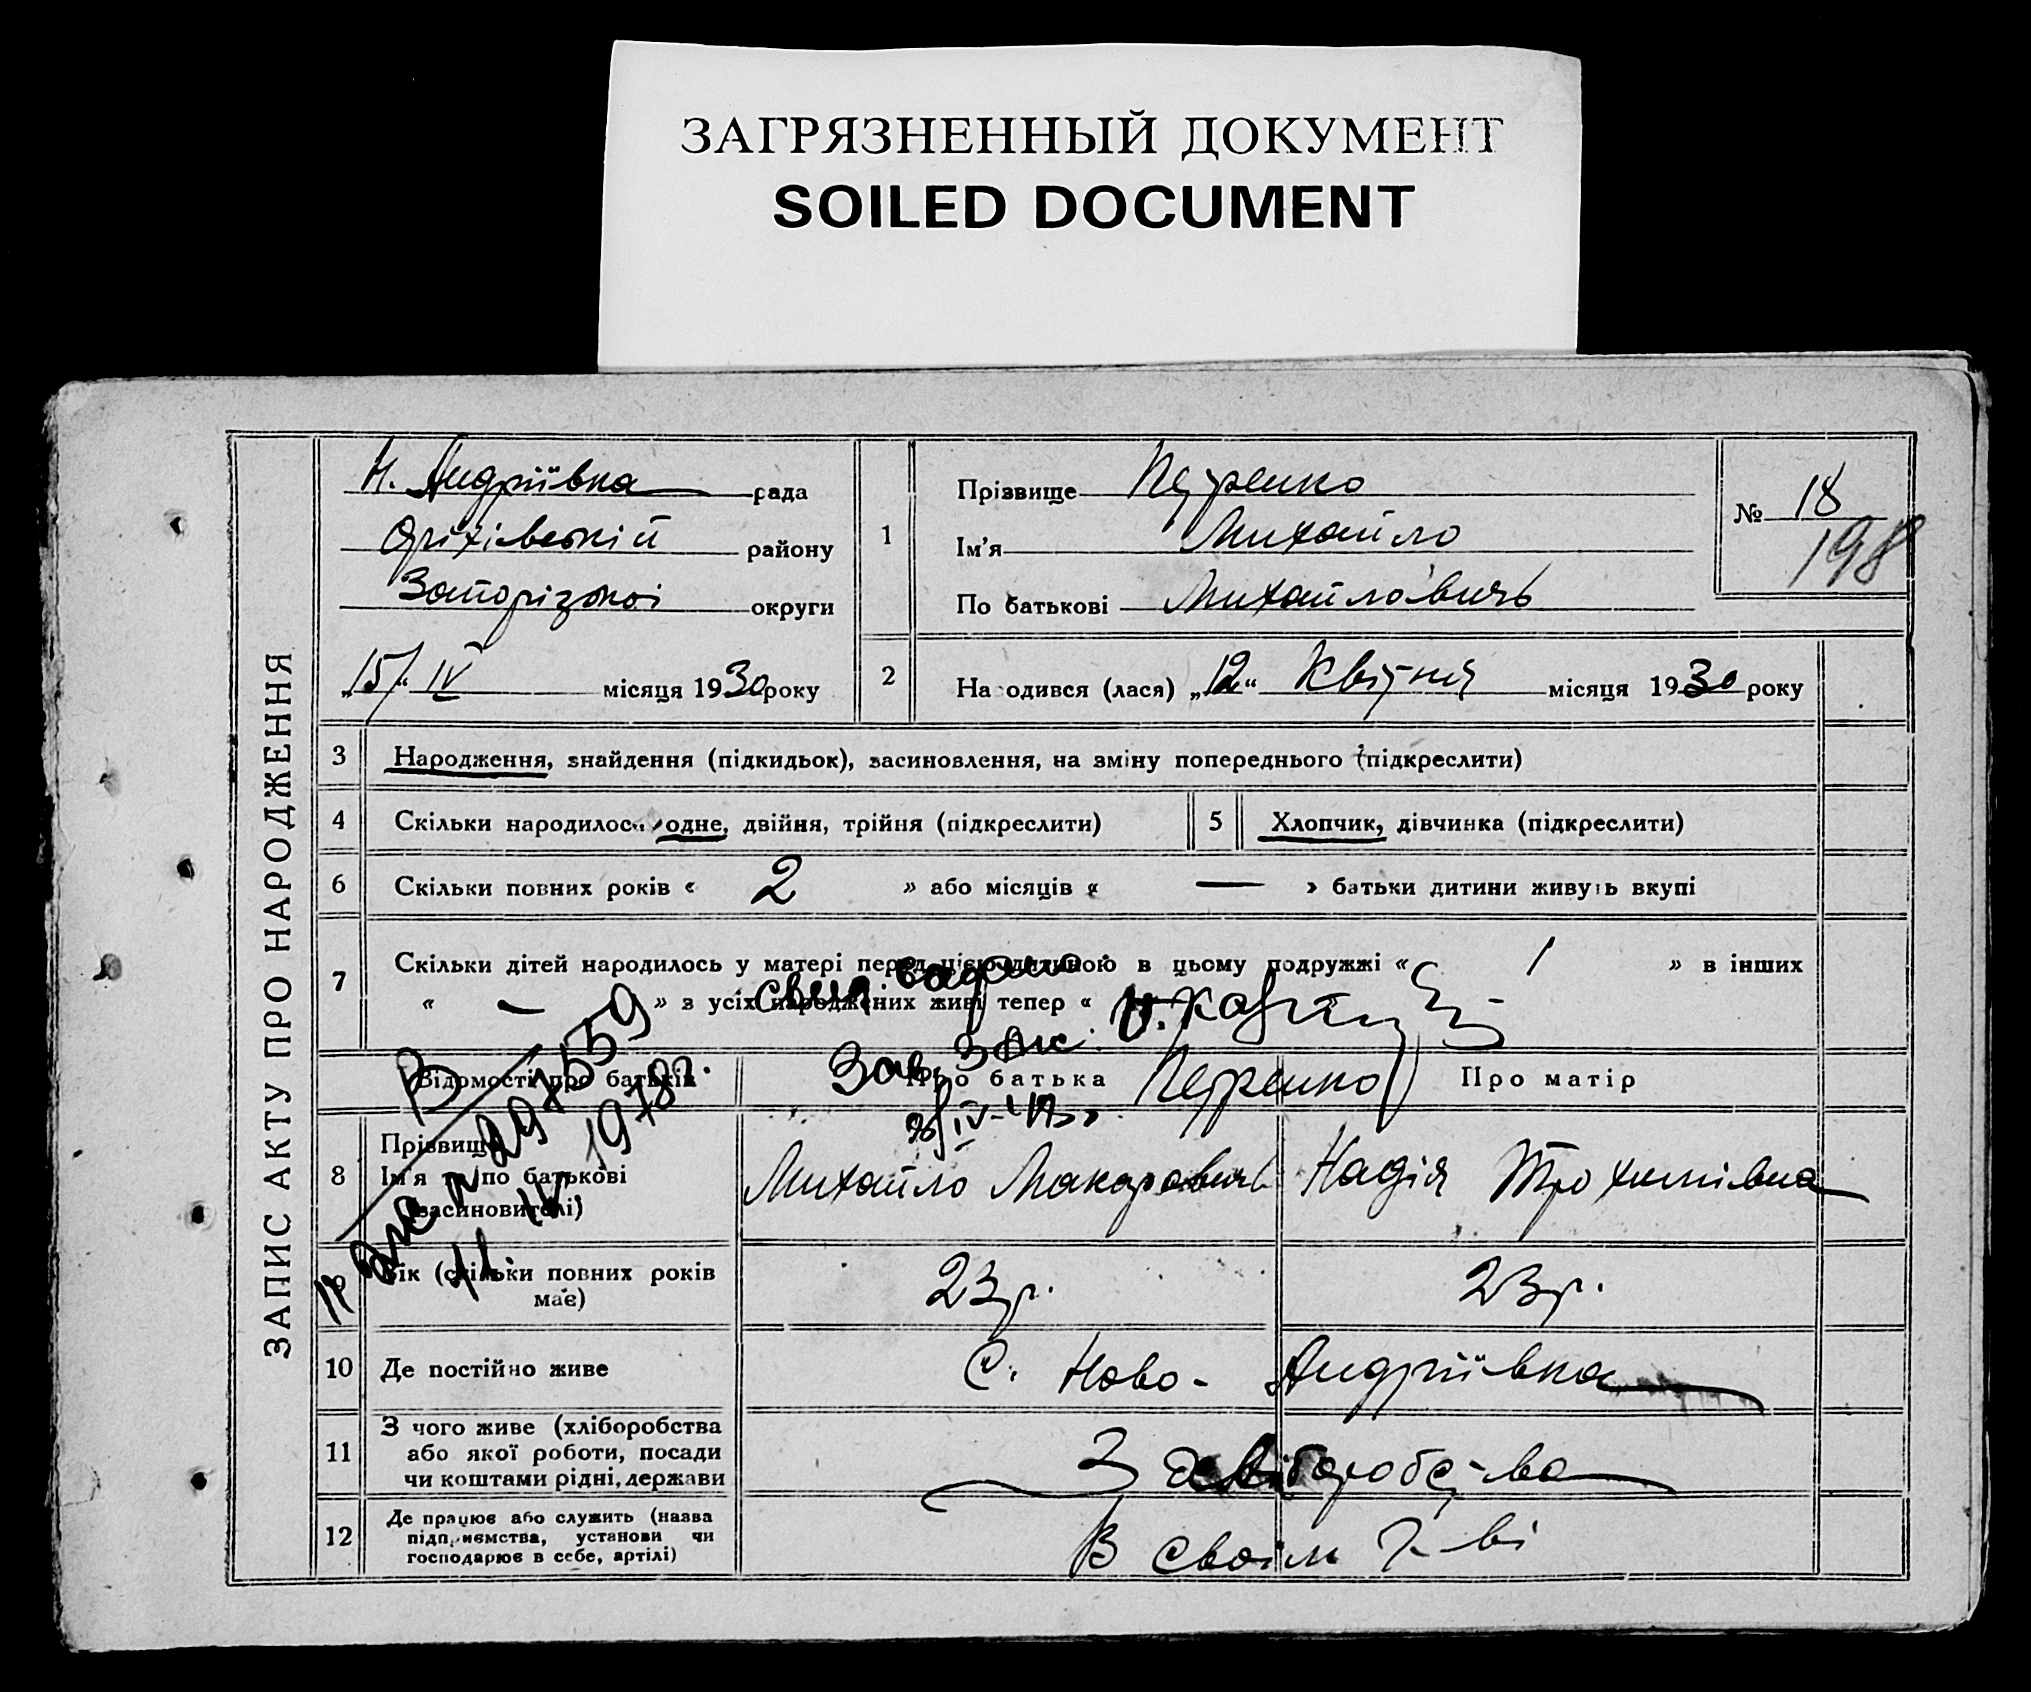 ЗАГРЯЗНЕННЫЙ ДОКУМЕНТ
SOILED DOCUMENT
ЗАПИС АКТУ ПРО НАРОДЖЕННЯ
Н. Андріївка рада
Оріхівській району
Запорізької округи
„15/" IV місяця 1930 року
1
Прізвище Петренко
Ім'я Михайло
По батькові Михайловичь
№ 18
198
2
На одився (лася) „12" Квітня місяця 1930 року
3 Народження, знайдення (підкидьок), засиновлення, на зміну попереднього (підкреслити)
4 Скільки народилос одне, двійня, трійня (підкреслити)
5 Хлопчик, дівчинка (підкреслити)
6 Скільки повних років « 2 » або місяців « — » батьки дитини живуть вкупі
7 Скільки дітей народилось у матері перед цією дитиною в цьому подружжі « 1 » в інших
« — » з усіх народжених живі тепер «
Відомості про батьків
Про батька
Петренко
Про матір
8 Прізвище
Ім'я та по батькові
(засиновителі)
Михайло Макаровичь
Надія Трохимівна
1978г.
9 Вік (скільки повних років
має)
23 р.
23 р.
10 Де постійно живе
С. Ново-Андріївка
11 З чого живе (хліборобства
або якої роботи, посади
чи коштами рідні, держави
З хліборобства
12 Де працює або служить (назва
підприємства, установи чи
господарює в себе, артілі)
В своїм г-ві